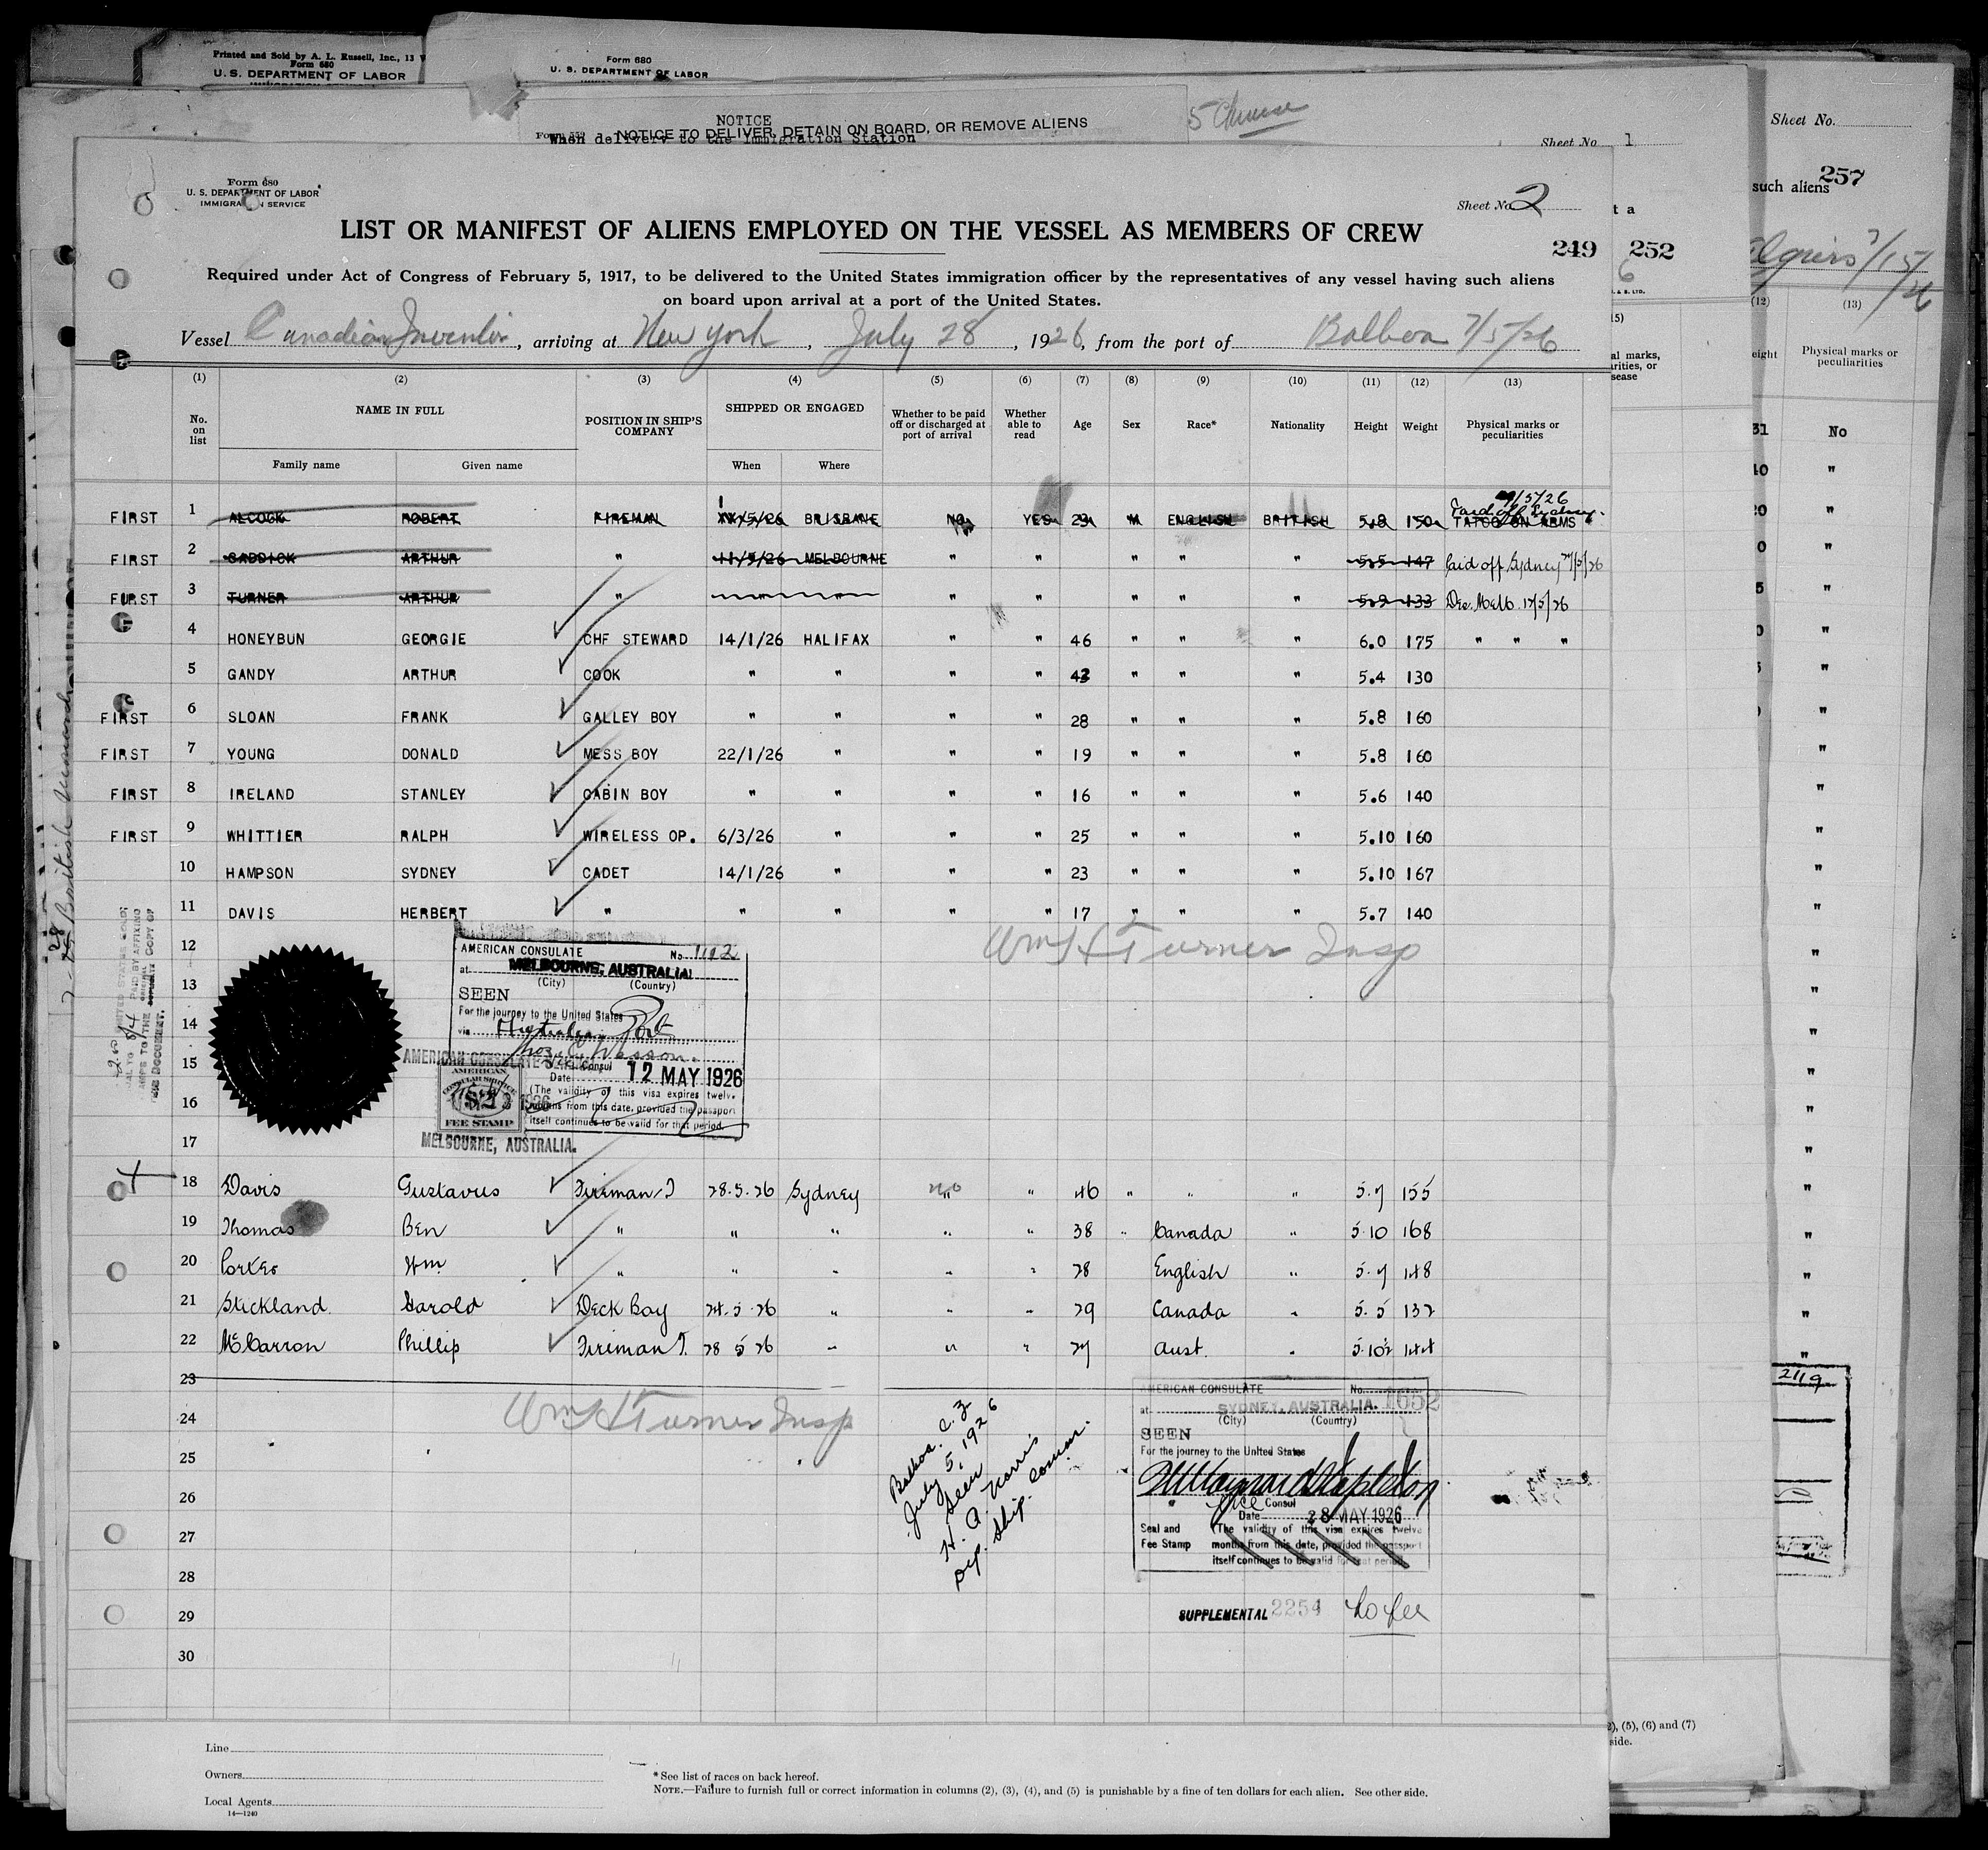 Printed and Sold by A. L. Russell, Inc., 13
Form 680
U. S. DEPARTMENT OF LABOR
Form 680
U. S. DEPARTMENT OF LABOR
NOTICE
NOTICE TO DELIVER, DETAIN ON BOARD, OR REMOVE ALIENS
When delivery to the Immigration Station
5 Chinese
Sheet No. 1
Sheet No.
such aliens
257
252
Form 680
U. S. DEPARTMENT OF LABOR
IMMIGRATION SERVICE
Sheet No. 2
LIST OR MANIFEST OF ALIENS EMPLOYED ON THE VESSEL AS MEMBERS OF CREW
249
Required under Act of Congress of February 5, 1917, to be delivered to the United States immigration officer by the representatives of any vessel having such aliens
on board upon arrival at a port of the United States.
Vessel Canadian Inventor, arriving at New York, July 28, 1926, from the port of Balboa 7/5/26
(1) (2) (3) (4) (5) (6) (7) (8) (9) (10) (11) (12) (13)
No. on list NAME IN FULL POSITION IN SHIP'S COMPANY SHIPPED OR ENGAGED Whether to be paid off or discharged at port of arrival Whether able to read Age Sex Race* Nationality Height Weight Physical marks or peculiarities
Family name Given name When Where
FIRST 1 ALCOCK ROBERT FIREMAN 1/5/26 BRISBANE NO YES 23 M ENGLISH BRITISH 5.8 150 TATOO ON ARMS Paid off Sydney /5/26
FIRST 2 CADDICK ARTHUR " 11/5/26 MELBOURNE " " " " " 5.5 147 Paid off Sydney /5/26
FIRST 3 TURNER ARTHUR " " " " " " " " 5.9 133 Des. Melb. 12/5/26
4 HONEYBUN GEORGIE CHF STEWARD 14/1/26 HALIFAX " " 46 " " " 6.0 175 " " "
5 GANDY ARTHUR COOK " " " " 43 " " " 5.4 130
FIRST 6 SLOAN FRANK GALLEY BOY " " " " 28 " " " 5.8 160
FIRST 7 YOUNG DONALD MESS BOY 22/1/26 " " " 19 " " " 5.8 160
FIRST 8 IRELAND STANLEY CABIN BOY " " " " 16 " " " 5.6 140
FIRST 9 WHITTIER RALPH WIRELESS OP. 6/3/26 " " " 25 " " " 5.10 160
10 HAMPSON SYDNEY CADET 14/1/26 " " " 23 " " " 5.10 167
11 DAVIS HERBERT " " " " " 17 " " " 5.7 140
Wm H Turner Insp
12
13
14
15
16
17
AMERICAN CONSULATE No. 1192
at MELBOURNE, AUSTRALIA
(City) (Country)
SEEN
For the journey to the United States
via Australian Port
Consul
Date 12 MAY 1926
(The validity of this visa expires twelve
months from this date, provided the passport
itself continues to be valid for that period.
AMERICAN CONSULAR SERVICE
$2
FEE STAMP
MELBOURNE, AUSTRALIA.
18 Davis Gustavus Fireman T 28.5.26 Sydney No " 46 " " " 5.7 155
19 Thomas Ben " " " " " 38 " Canada " 5.10 168
20 Porter Wm " " " " " 28 English " 5.7 148
21 Stickland Harold Deck Boy 24.5.26 " " " 29 Canada " 5.5 132
22 McCarron Phillip Fireman T. 28 5 26 " " " 27 Aust. " 5.10½ 144
23
24
25
26
27
28
29
30
Wm H Turner Insp
Balboa. C. Z
July 5, 1926
Seen
H. A. Norris
Dep. Ship. Commr.
AMERICAN CONSULATE No. 1652
at SYDNEY, AUSTRALIA.
(City) (Country)
SEEN
For the journey to the United States
Vice Consul
Date 28 MAY 1926
Seal and Fee Stamp
(The validity of this visa expires twelve
months from this date, provided the passport
itself continues to be valid for that period.
SUPPLEMENTAL 2254 No fee
Line
Owners
Local Agents
14—1240
* See list of races on back hereof.
NOTE.—Failure to furnish full or correct information in columns (2), (3), (4), and (5) is punishable by a fine of ten dollars for each alien. See other side.
(12) (13)
Physical marks or peculiarities
No
2119
(5), (6) and (7)
side.